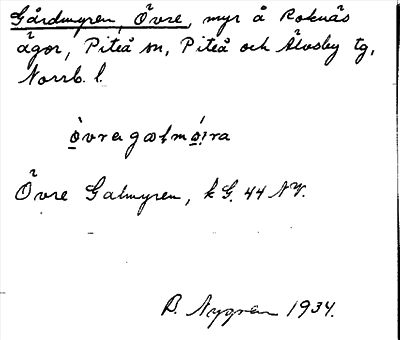 Gårdmyren, Övre, myr å Roknäs
ägor, Piteå sn, Piteå och Älvsby tg,
Norrb. l.
òvragaɫmó̤ira
Övre Galmyren, k G. 44 NV.
B. Nygren 1934.